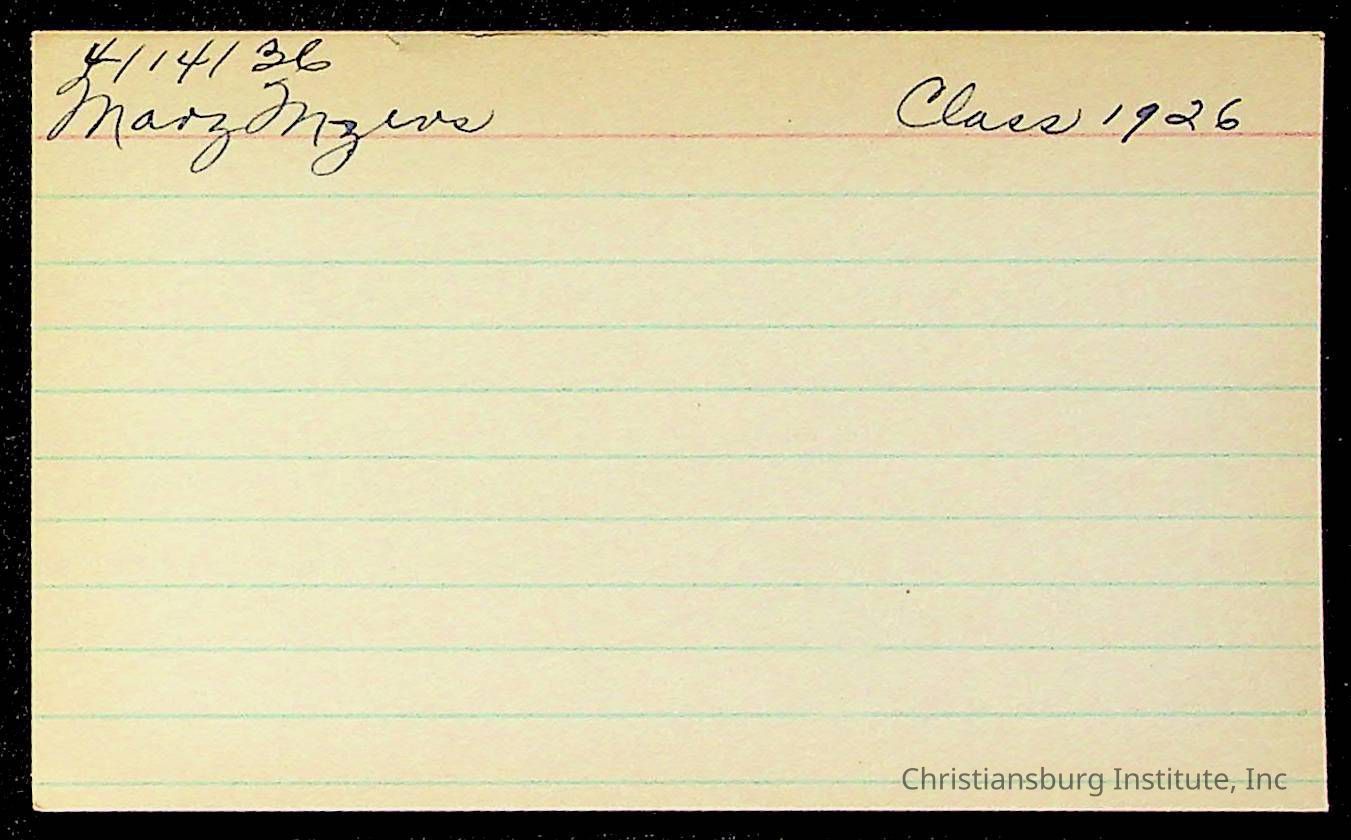 4/14/36
Mary Myers
Class 1926
Christiansburg Institute, Inc